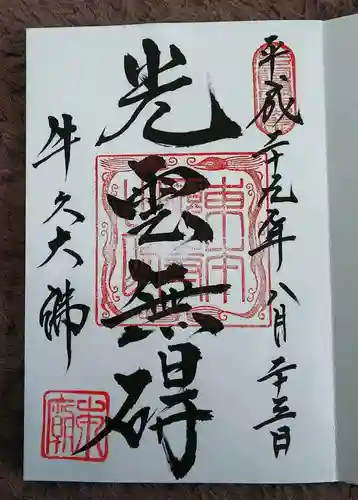 平成二十九年八月二十三日
光雲無碍
牛久大佛